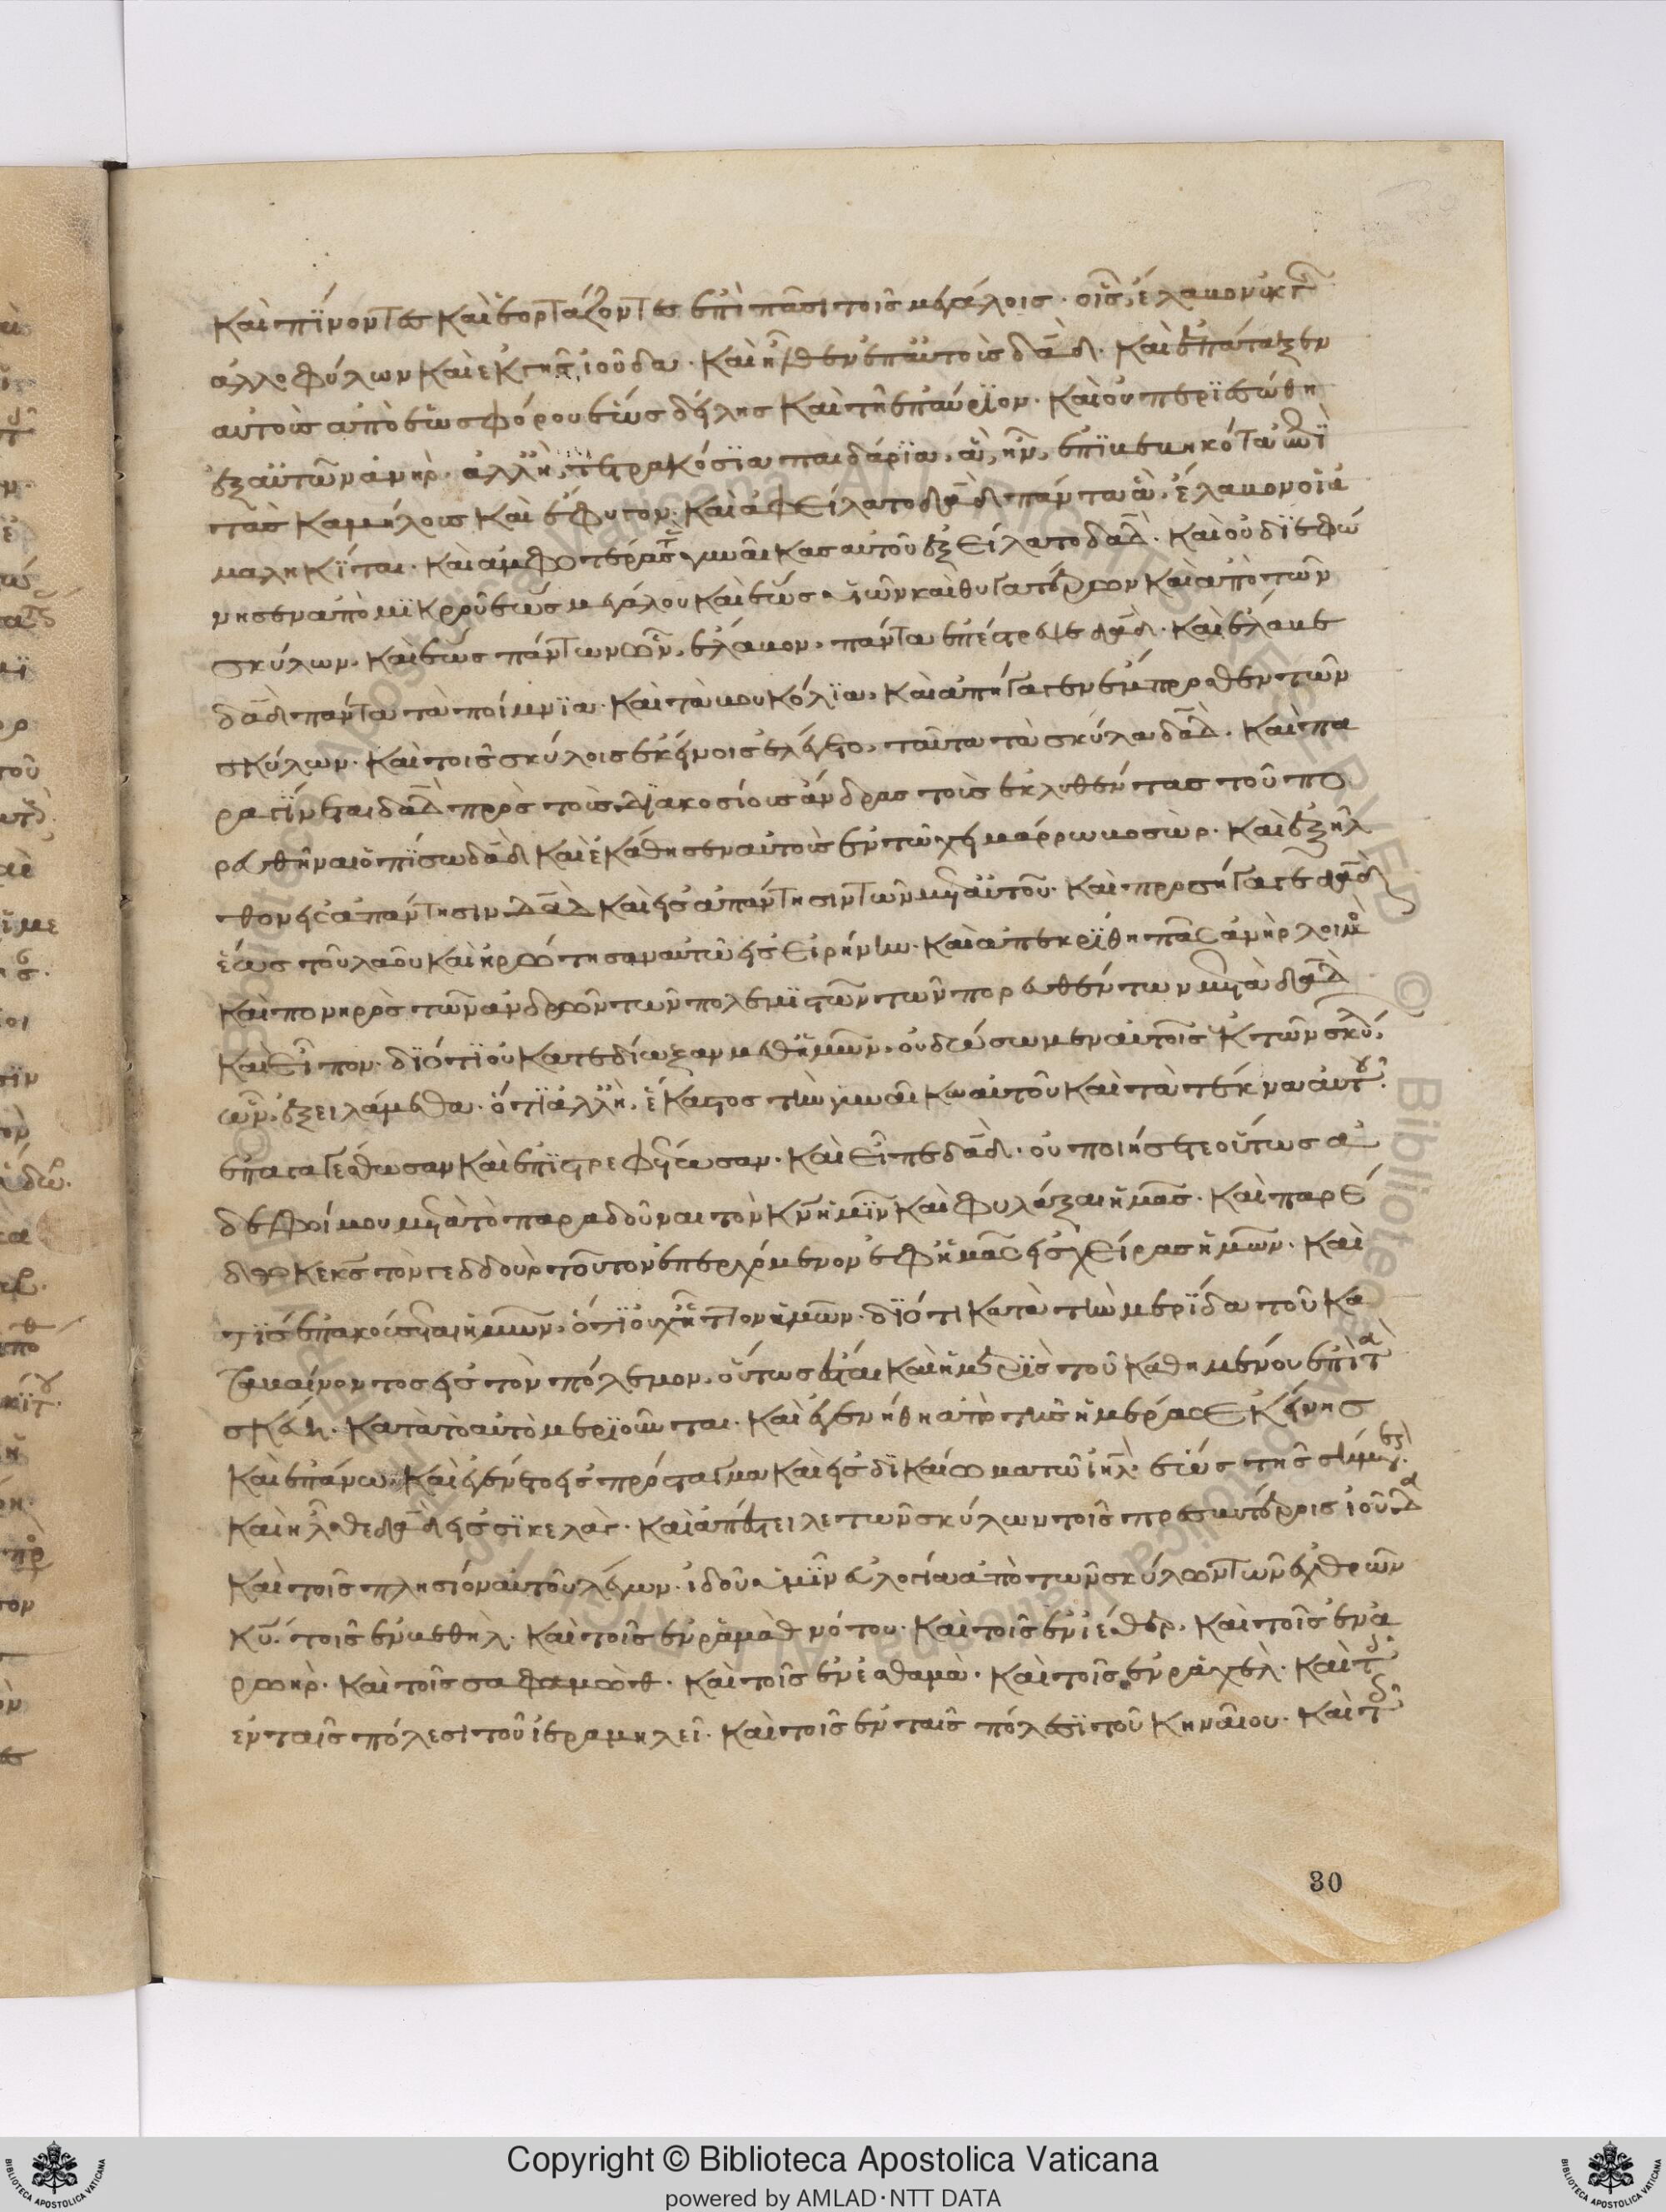 καὶ πΐνοντες καὶ ἑορτάζοντες ἐπὶ πᾶσι τοῖς μεγάλοις· οἷς, ἔλαβον ἐκ τ
ἀλλοφύλων καὶ ἐκ τῆς ἰούδα· καὶ ἦλθεν ἐπ αὐτοὺς δαδ· καὶ ἐπάταξεν
αὐτοὺς ἀπὸ ἑωσφόρου ἕως δείλης καὶ τῆ ἐπαύριον· καὶ οὐ περϊεσώθη
ἐξ αὐτῶν ἀνὴρ· ἀλλ ἢ, τετρακόσϊα παιδάρϊα, ἃ, ἦν, ἐπϊβεβηκότα ἐπῒ
τὰς καμήλους καὶ ἔφυγον· καὶ ἀφείλατο δαδ πάντα ἃ, ἔλαβον οἱ ἀ
μαληκῖται· καὶ ἀμφοτέρας τὰς γυναῖκας αὐτοῦ ἐξείλατο δαδ· καὶ οὐ δϊεφώ
νησεν ἀπὸ μϊκροῦ ἕως μεγάλου καὶ ἕως υἱῶν καὶ θυγατέρων καὶ ἀπὸ τῶν
σκύλων· καὶ ἕως πάντων ὧν, ἔλαβον, πάντα ἐπέστρεψε δαδ· καὶ ἔλαβε
δαδ πάντα τὰ ποίμνϊα· καὶ τὰ βουκόλϊα, καὶ ἀπήγαγεν ἔμπροσθεν τῶν
σκύλων· καὶ τοῖς σκύλοις ἐκείνοις ἐλέγετο, ταῦτα τὰ σκύλα δαδ· καὶ πα
ραγΐνεται δαδ πρὸς τοὺς δϊακοσίους ἄνδρας τοὺς ἐκλυθέντας τοῦ πο
ρευθῆναι ὀπΐσω δαδ καὶ ἐκάθησεν αὐτοὺς ἐν τῶ χειμάρρω βοσὼρ· καὶ ἐξῆλ
θον εἰς ἀπάντησιν δαδ καὶ εἰς ἀπάντησιν τῶν μετ αὐτοῦ· καὶ προσήγαγε δαδ
ἕως τοῦ λαοῦ καὶ ἠρώτησαν αὐτῶ εἰς εἰρήνην· καὶ ἀπεκρΐθη πᾶς ἀνὴρ λοιμὸ
καὶ πονηρὸς τῶν ἀνδρῶν τῶν πολεμϊστῶν τῶν πορευθέντων μετὰ δαδ
καὶ εἶπον· δϊότϊ οὐ κατεδίωξαν μεθ ἡμῶν, οὐ δώσωμεν αὐτοῖς ἐκ τῶν σκύ,
ὧν, ἐξειλάμεθα· ὅτϊ ἀλλ ἢ, ἕκαστος τὴν γυναῖκα αὐτοῦ καὶ τὰ τέκνα αὐτ·
ἐπαγαγέσθωσαν καὶ ἐπϊστρεφέτωσαν· καὶ εἶπε δαδ· οὐ ποιήσετε οὕτως ἀ
δελφοί μου μετὰ τὸ παραδοῦναι τὸν κν ἡμῖν καὶ φυλάξαι ἡμᾶς· καὶ παρέ
δωκε κς τὸν γεδδοὺρ τοῦτον ἐπερχόμενον ἐφ ἡμᾶς εἰς χεῖρας ἡμῶν· καὶ
τΐς ἐπακούσεται ἡμῶν, ὅτϊ οὐχ ἧττον ἡμῶν· δϊότι κατὰ τὴν μερΐδα τοῦ κα
ταβαίνοντος εἰς τὸν πόλεμον, οὕτως ἔσται καὶ ἡ μερὶς τοῦ καθημένου ἐπὶ τὰ
σκεύη· κατὰ τὸ αὐτὸ μερϊοῦνται· καὶ ἐγενήθη ἀπὸ τῆς ἡμέρας ἐκείνης
καὶ ἐπάνω, καὶ ἐγένετο εἰς πρόσταγμα καὶ εἰς δϊκαίωμα τῶ ἰηλ ἕως τῆς σήμερ·
καὶ ἦλθε δαδ εἰς σϊκελὰγ· καὶ ἀπέστειλε τῶν σκύλων τοῖς πρεσβυτέροις ἰούδα
καὶ τοῖς πλησίον αὐτοῦ λέγων· ἰδοὺ ὑμῖν εὐλογία ἀπὸ τῶν σκύλων τῶν ἐχθρῶν
κυ· τοῖς ἐν βεθὴλ· καὶ τοῖς ἐν ῥαμὰθ νότου· καὶ τοῖς ἐν ἰέθερ, καὶ τοῖς ἐν ἀ
ρωὴρ· καὶ τοῖς σαφαμὼθ· καὶ τοῖς ἐν ἐσθαμὰ· καὶ τοῖς ἐν ῥάχελ· καὶ τ
ἐν ταῖς πόλεσι τοῦ ἱεραμηλεῖ· καὶ τοῖς ἐν ταῖς πόλεσϊ τοῦ κηναίου· καὶ τ
30
Copyright © Biblioteca Apostolica Vaticana
powered by AMLAD·NTT DATA